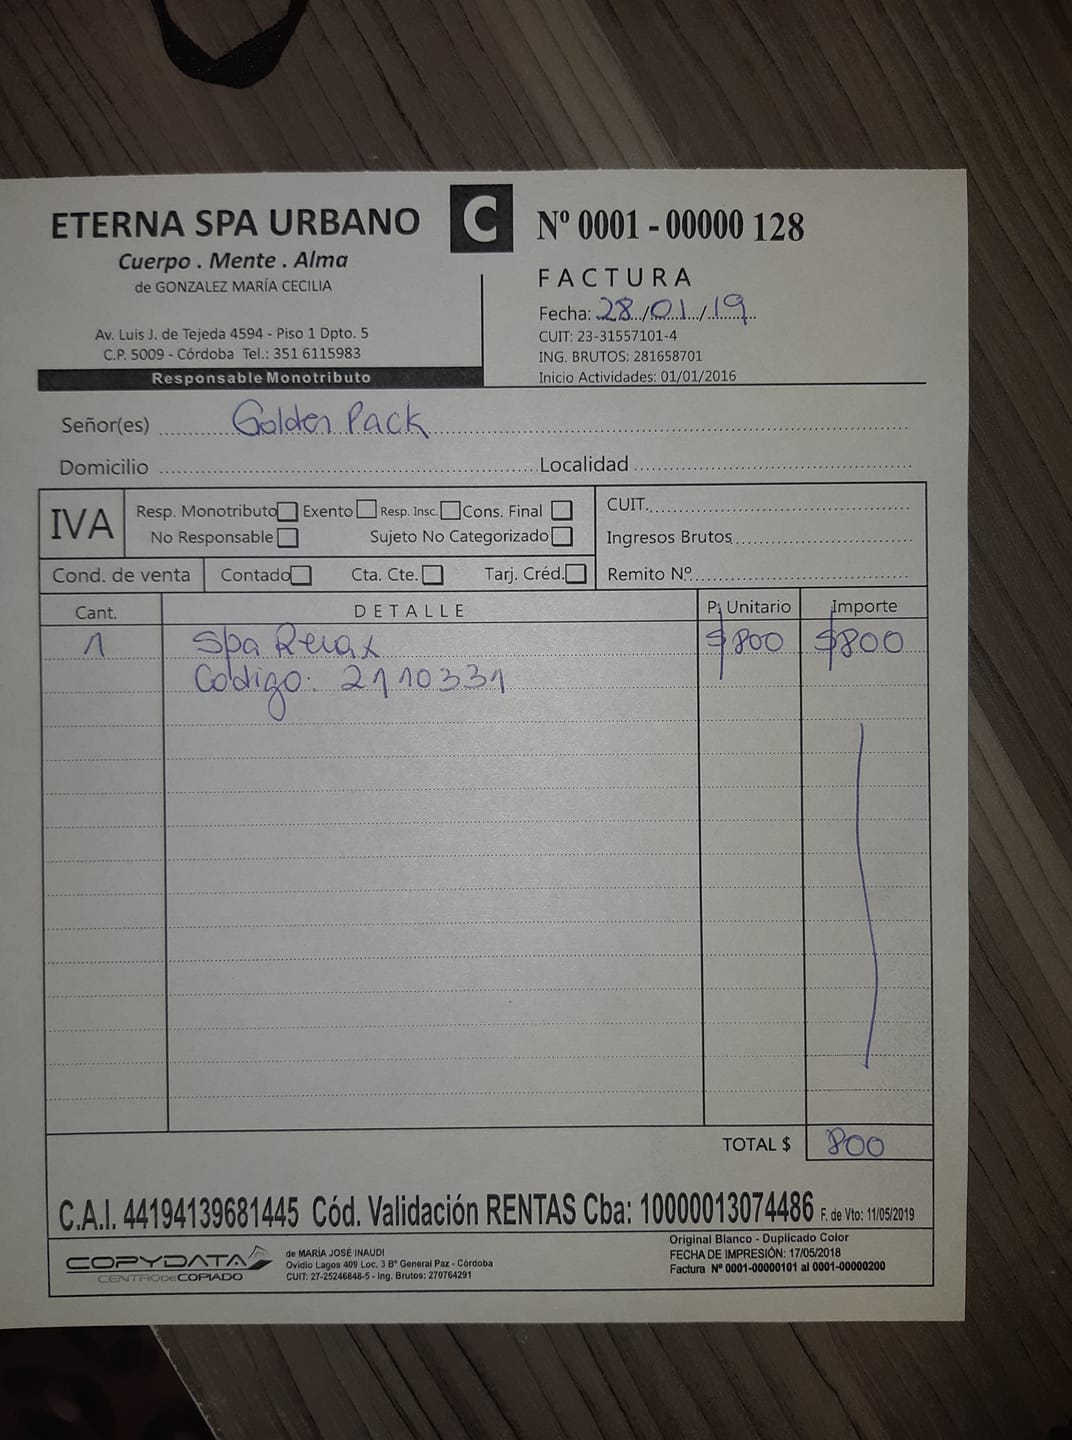 ETERNA SPA URBANO
Cuerpo . Mente . Alma
de GONZALEZ MARÍA CECILIA
Av. Luis J. de Tejeda 4594 - Piso 1 Dpto. 5
C.P. 5009 - Córdoba Tel.: 351 6115983
Responsable Monotributo
C
Nº 0001 - 00000 128
FACTURA
Fecha: 28/01/19
CUIT: 23-31557101-4
ING. BRUTOS: 281658701
Inicio Actividades: 01/01/2016
Señor(es) Golden Pack
Domicilio Localidad
IVA
Resp. Monotributo Exento Resp. Insc. Cons. Final
No Responsable Sujeto No Categorizado
CUIT.
Ingresos Brutos
Cond. de venta Contado Cta. Cte. Tarj. Créd.
Remito Nº
Cant. DETALLE P. Unitario Importe
1 Spa Relax $800 $800
Codigo: 2110331
TOTAL $ 800
C.A.I. 44194139681445 Cód. Validación RENTAS Cba: 10000013074486 F. de Vto: 11/05/2019
COPYDATA
CENTRO DE COPIADO
de MARÍA JOSÉ INAUDI
Ovidio Lagos 409 Loc. 3 Bº General Paz - Córdoba
CUIT: 27-25246848-5 - Ing. Brutos: 270764291
Original Blanco - Duplicado Color
FECHA DE IMPRESIÓN: 17/05/2018
Factura Nº 0001-00000101 al 0001-00000200